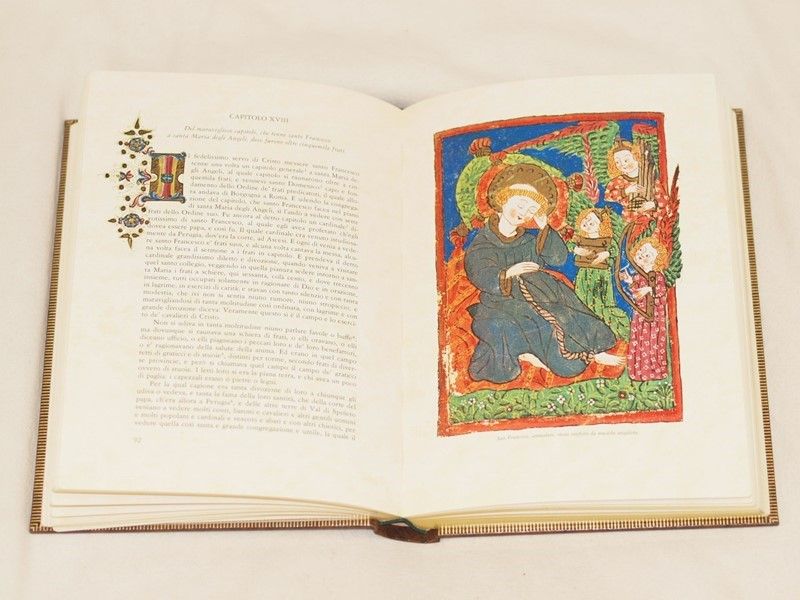 CAPITOLO XVIII
Del maraviglioso capitolo, che tenne santo Francesco
a santa Maria degli Angeli, dove furono oltre cinquemila frati.
Il fedelissimo servo di Cristo messere santo Francesco
tenne una volta un capitolo generale a santa Maria de-
gli Angeli, al quale capitolo si raunarono oltre a cin-
quemila frati, e vennevi santo Domenico capo e fon-
damento dello Ordine de' frati predicatori, il quale allo-
ra andava di Borgogna a Roma. E udendo la congrega-
zione del capitolo, che santo Francesco facea nel piano
di santa Maria degli Angeli, sì l'andò a vedere con sette
frati dello Ordine suo. Fu ancora al detto capitolo un cardinale
divotissimo di santo Francesco, al quale egli avea profetato ch'egli
dovea essere papa, e così fu. Il quale cardinale era venuto istudiosamente
da Perugia, dov'era la corte, ad Ascesi. E ogni dì venìa a vede-
re santo Francesco e' frati suoi, e alcuna volta cantava la messa, alcu-
na volta facea il sermone a i frati in capitolo. E prendeva il detto
cardinale grandissimo diletto e divozione, quando veniva a visitare
quel santo collegio, veggendo in quella pianura sedere intorno a san-
ta Maria i frati a schiere, qui sessanta, colà cento, e dove trecento
insieme, tutti occupati solamente in ragionare di Dio e in orazioni,
in lagrime, in esercizi di carità; e stavano con tanto silenzio e con tanta
modestia, che ivi non si sentia niuno rumore, niuno stropiccio; e
maravigliandosi di tanta moltitudine così ordinata, con lagrime e con
grande divozione diceva: Veramente questo si è il campo e lo eserci-
to de' cavalieri di Cristo.
Non si udiva in tanta moltitudine niuno parlare favole o buffe,
ma dovunque si raunava una schiera di frati, o elli oravano, o elli
diceano ufficio, o elli piagneano i peccati loro e de' loro benefattori,
o e' ragionavano della salute della anima. Ed erano in quel campo
tetti di graticci e di stuoie, distinti per torme, secondo frati di diver-
se provincie, e però si chiamava quel capitolo il campo de' graticci
ovvero di stuoie. I letti loro si era la piena terra, e chi avea un poco
di paglia; i capezzali erano o pietre o legni.
Per la qual cagione era tanta divozione di loro a chiunque gli
udiva o vedeva, e tanta la fama della loro santità, che della corte del
papa, ch'era allora a Perugia, e delle altre terre di Val di Spoleto
veniano a vedere molti conti, baroni e cavalieri e altri gentili uomini
e molti popolani e cardinali e vescovi e abati e con altri chierici, per
vedere quella così santa e grande congregazione e umile, la quale il
92
San Francesco, ammalato, viene confortato da musiche angeliche.